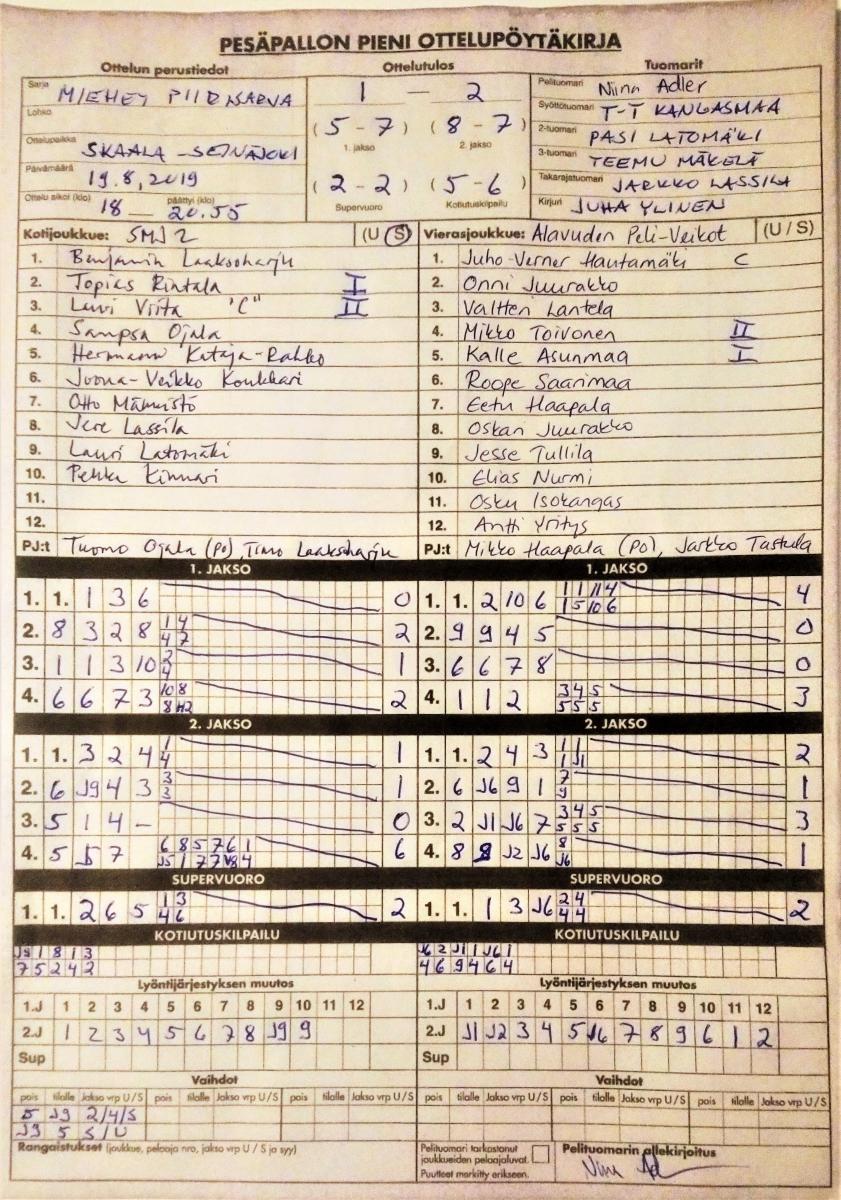 PESÄPALLON PIENI OTTELUPÖYTÄKIRJA
Ottelun perustiedot Ottelutulos Tuomarit
Sarja MIEHET
Lohko
Ottelupaikka SKAALA - SEINÄJOKI
Päivämäärä 19.8.2019
Ottelu alkoi (klo) 18 — päättyi (klo) 20.55
1 — 2
(5 - 7) (8 - 7)
1. jakso 2. jakso
(2 - 2) (5 - 6)
Supervuoro Kotiutuskilpailu
Pelituomari Niina Adler
Syöttötuomari T-T KANGASMAA
2-tuomari PASI LATOMÄKI
3-tuomari TEEMU MÄKELÄ
Takarajatuomari JARKKO LASSILA
Kirjuri JUHA YLINEN
Kotijoukkue: SMJ 2 (U / S) Vierasjoukkue: Alavuden Peli-Veikot (U / S)
1. Benjamin Laaksoharju 1. Juho-Verner Hautamäki C
2. Topias Rintala I 2. Onni Juurakko
3. Lauri Viita "C" II 3. Valtteri Lantela
4. Sampsa Ojala 4. Mikko Toivonen II
5. Hermanni Kataja-Rahko 5. Kalle Asunmaa I
6. Joona-Veikko Koukkari 6. Roope Saarimaa
7. Otto Mämmistö 7. Eetu Haapala
8. Jere Lassila 8. Oskari Juurakko
9. Lauri Latomäki 9. Jesse Tullila
10. Pekka Kinnari 10. Elias Nurmi
11. 11. Osku Isokangas
12. 12. Antti Yritys
PJ:t Tuomo Ojala (PO), Timo Laaksoharju PJ:t Mikko Haapala (PO), Jarkko Tastula
1. JAKSO 1. JAKSO
1. 1. 1 3 6 0 1. 1. 2 10 6 4
2. 8 3 2 8 1 4 2 2. 9 9 4 5 0
4 7
3. 1 1 3 10 1 3. 6 6 7 8 0
4. 6 6 7 3 10 8 2 4. 1 1 2 3 4 5 3
5 5 5
2. JAKSO 2. JAKSO
1. 1. 3 2 4 1 1 1. 1. 2 4 3 1 1 2
4 1 J1
2. 6 J9 4 3 3 1 2. 6 J6 9 1 7 1
3 9
3. 5 1 4 - 0 3. 2 J1 J6 7 3 4 5 3
5 5 5
4. 5 7 6 8 5 7 6 1 6 4. 8 8 J2 J6 8 1
J6
SUPERVUORO SUPERVUORO
1. 1. 2 6 5 1 3 2 1. 1. 1 3 J6 2 4 2
4 6 4 4
KOTIUTUSKILPAILU KOTIUTUSKILPAILU
J9 1 8 1 3 J6 2 J1 1 J6 1
7 5 2 4 2 4 6 9 4 6 4
Lyöntijärjestyksen muutos Lyöntijärjestyksen muutos
1.J 1 2 3 4 5 6 7 8 9 10 11 12 1.J 1 2 3 4 5 6 7 8 9 10 11 12
2.J 1 2 3 4 5 6 7 8 J9 9 2.J J1 J2 3 4 5 J6 7 8 9 6 1 2
Sup Sup
Vaihdot Vaihdot
pois tilalle Jakso vrp U/S pois tilalle Jakso vrp U/S pois tilalle Jakso vrp U/S pois tilalle Jakso vrp U/S pois tilalle Jakso vrp U/S pois tilalle Jakso vrp U/S
5 J9 2/4/S
J9 5 S/U
Rangaistukset (joukkue, pelaaja nro, jakso vrp U / S ja syy)
Pelituomari tarkastanut
joukkueiden pelaajaluvat.
Puutteet merkitty erikseen.
Pelituomarin allekirjoitus